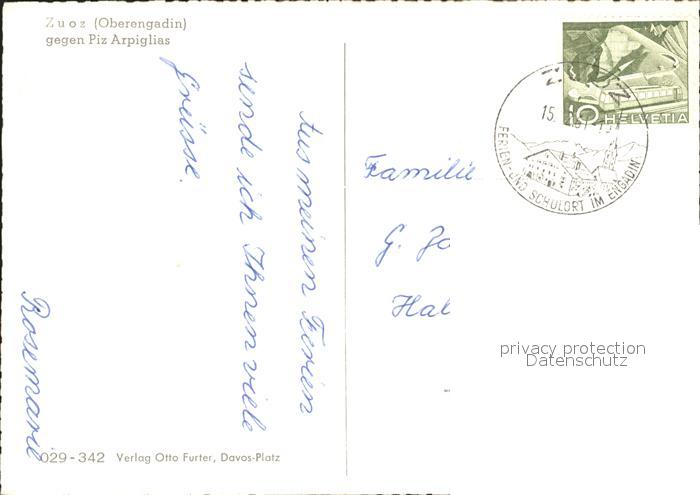 Zuoz (Oberengadin)
gegen Piz Arpiglias
Aus meinen Ferien
sende ich Ihnen viele
Grüsse.
Rosemarie
029-342 Verlag Otto Furter, Davos-Platz
10 HELVETIA
ZUOZ
15.
FERIEN- UND SCHULORT IM ENGADIN
Familie
G. Jo
Hal
privacy protection
Datenschutz